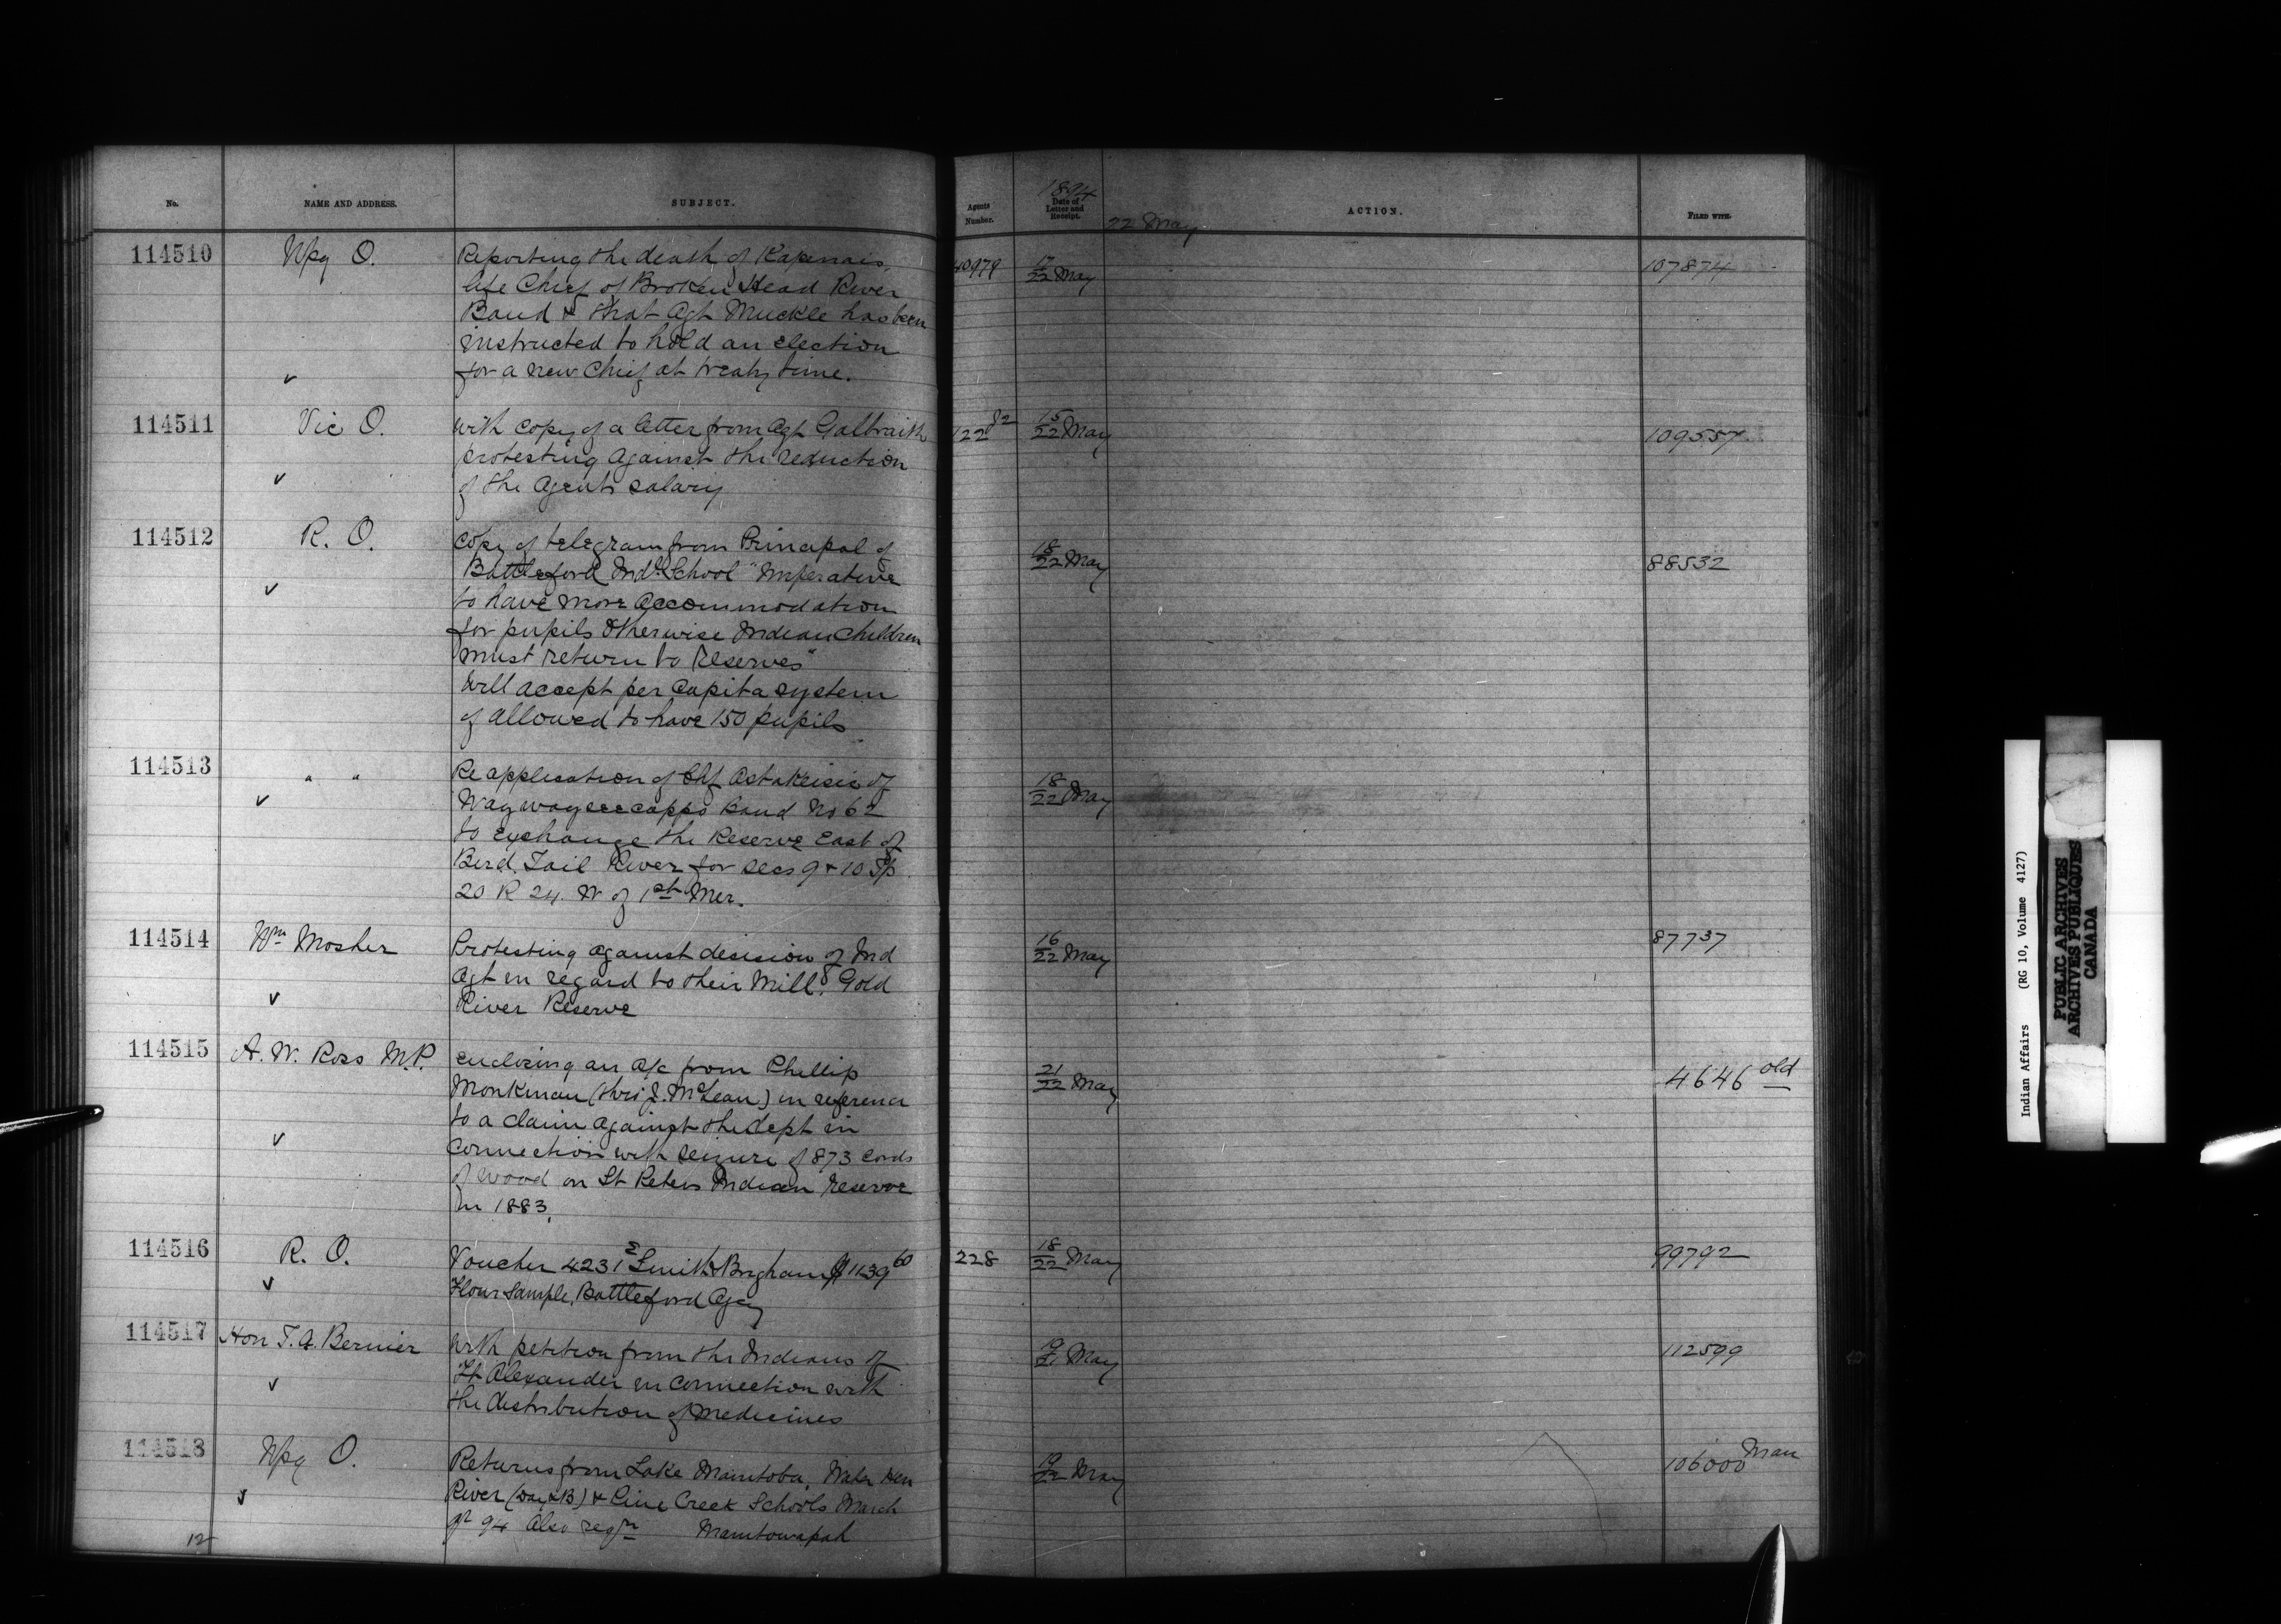 No.
NAME AND ADDRESS.
SUBJECT.
Agents Number.
1894
Date of Letter and Receipt.
22 May
ACTION.
FILED WITH.
114510 Wpg O. Reporting the death of Kapenais, 40979 17/22 May 107874
late Chief of Broken Head River
Band & that Agt Muckle has been
instructed to hold an election
for a new Chief at treaty time.
114511 Vic O. with copy of a letter from Agt Galbraith 122 J2 15/22 May 109557
protesting against the reduction
of the Agents salary
114512 R. O. Copy of telegram from Principal of 18/22 May 88532
Battleford Indl School "Imperative
to have more accommodation
for pupils otherwise Indian children
must return to Reserves"
Will accept per capita system
if allowed to have 150 pupils
114513 " " Re application of Chf Astakeisic of 18/22 May
Waywayseecappo Band No 62
to exchange the Reserve East of
Bird Tail River for secs 9 & 10 Tp
20 R 24. W of 1st Mer.
114514 Wm Mosher Protesting against decision of Ind 16/22 May 87737
Agt in regard to their Mill. Gold
River Reserve
114515 A. W. Ross M.P. enclosing an a/c from Phillip 21/22 May 4646 old
Monkman (thro J. McLean) in reference
to a claim against the dept in
connection with seizure of 873 cords
of wood on St Peters Indian reserve
in 1883.
114516 R. O. Voucher 4231 Smith & Brigham $1139 60 228 18/22 May 99792
Flour Sample, Battleford Agcy
114517 Hon T. A. Bernier With petition from the Indians of 19/21 May 112599
Ft Alexander in connection with
the distribution of medicines
114518 Wpg O. Returns from Lake Manitoba, Water Hen 19/22 May 106000 Man
River (Day & B) & Pine Creek Schools March
qr 94 Also reqn Manitowapah
12
Indian Affairs (RG 10, Volume 4127)
PUBLIC ARCHIVES
ARCHIVES PUBLIQUES
CANADA